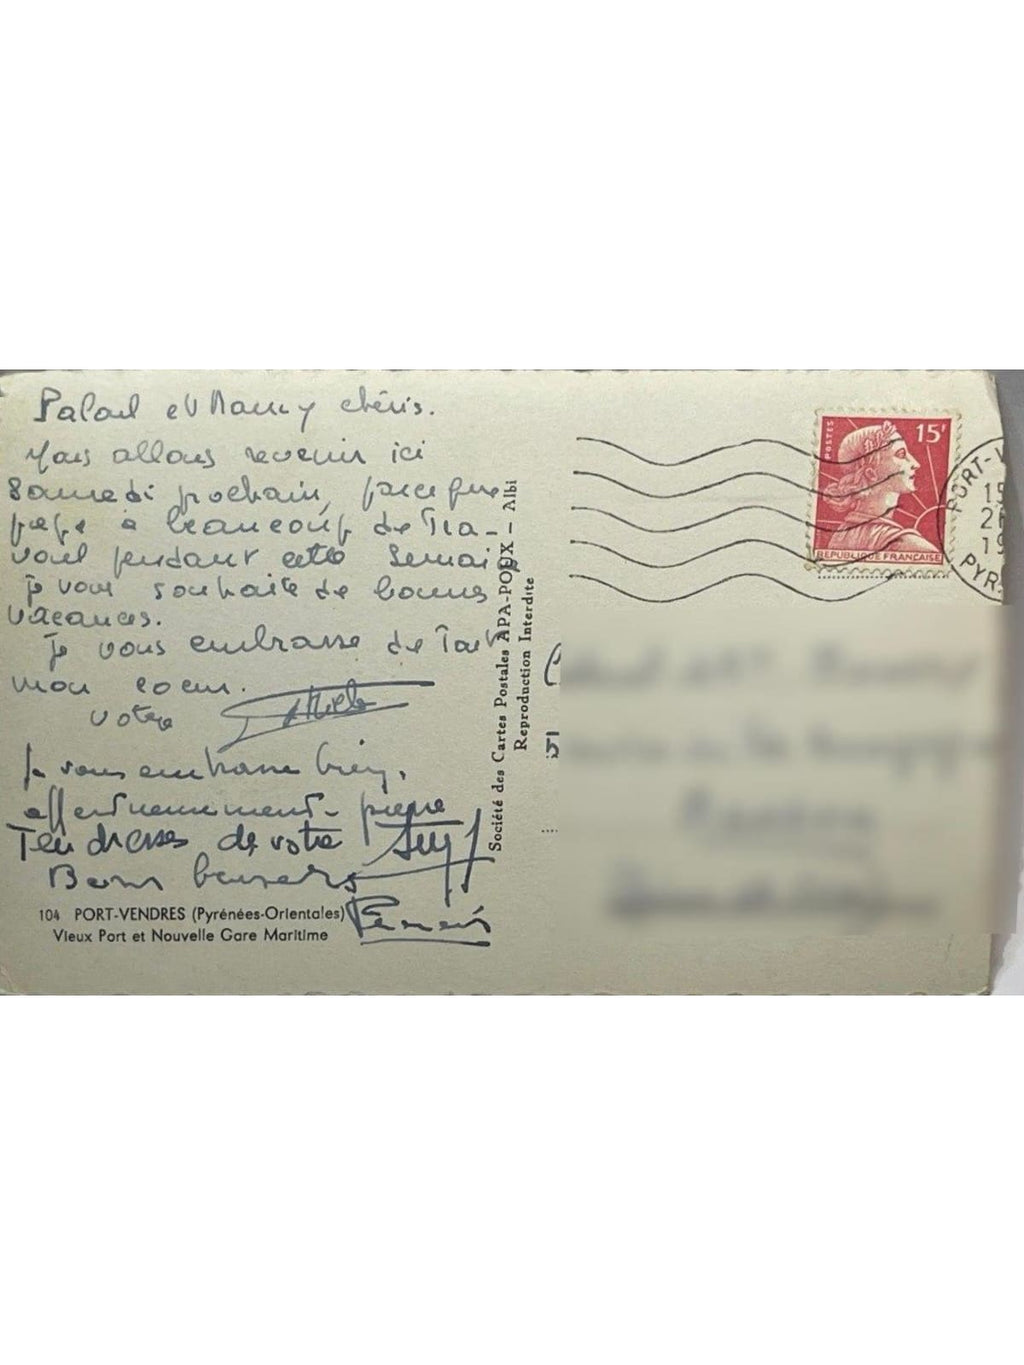 et Nancy chéris.
Nous allons revenir ici
Samedi prochain, parce que
papa a beaucoup de tra-
vail pendant cette Semai
je vous souhaite de bonnes
vacances.
Je vous embrasse de tout
mon coeur.
votre
Je vous embrasse bien,
affectueusement - pierre
Tendresses de votre
Bons baisers
104 PORT-VENDRES (Pyrénées-Orientales)
Vieux Port et Nouvelle Gare Maritime
Société des Cartes Postales APA-POUX - Albi
Reproduction Interdite
POSTES
15F
REPUBLIQUE FRANCAISE
PORT-V
15
2
19
PYR-